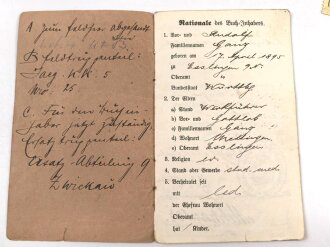 A. Zum Feldheer abgesandt
B. Feldtruppenteil:
Jäg. K. K. 5
No. 25
C. Für den
haber jetzt zuständig.
Ersatztruppenteil:
Ersatz-Abteilung 9
Zwickau
Nationale des Buch-Inhabers.
1. Vor- und Rudolf
Familiennamen Ganz
geboren am 17. April 1895
zu Esslingen
Oberamt "
Bundesstaat Württbg
2. Der Eltern
a) Stand Werkführer
b) Vor- und Gottlob
Familiennamen Ganz
d) Wohnort
e) Oberamt Esslingen
3. Religion ev.
4. Stand oder Gewerbe stud. med.
5. Verheiratet seit
mit led
der Ehefrau Wohnort
Oberamt
hat Kinder.